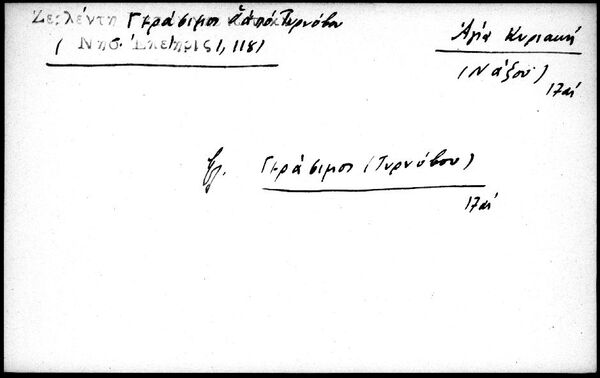 Ζερλέντη Γεράσιμος ἀπό Τυρνόβου
( Νησ. Ἐπετηρις 1, 118)
Ἁγία Κυριακή
(Νάξου)
17αἰ
βλ. Γεράσιμος (Τυρνόβου)
17αἰ